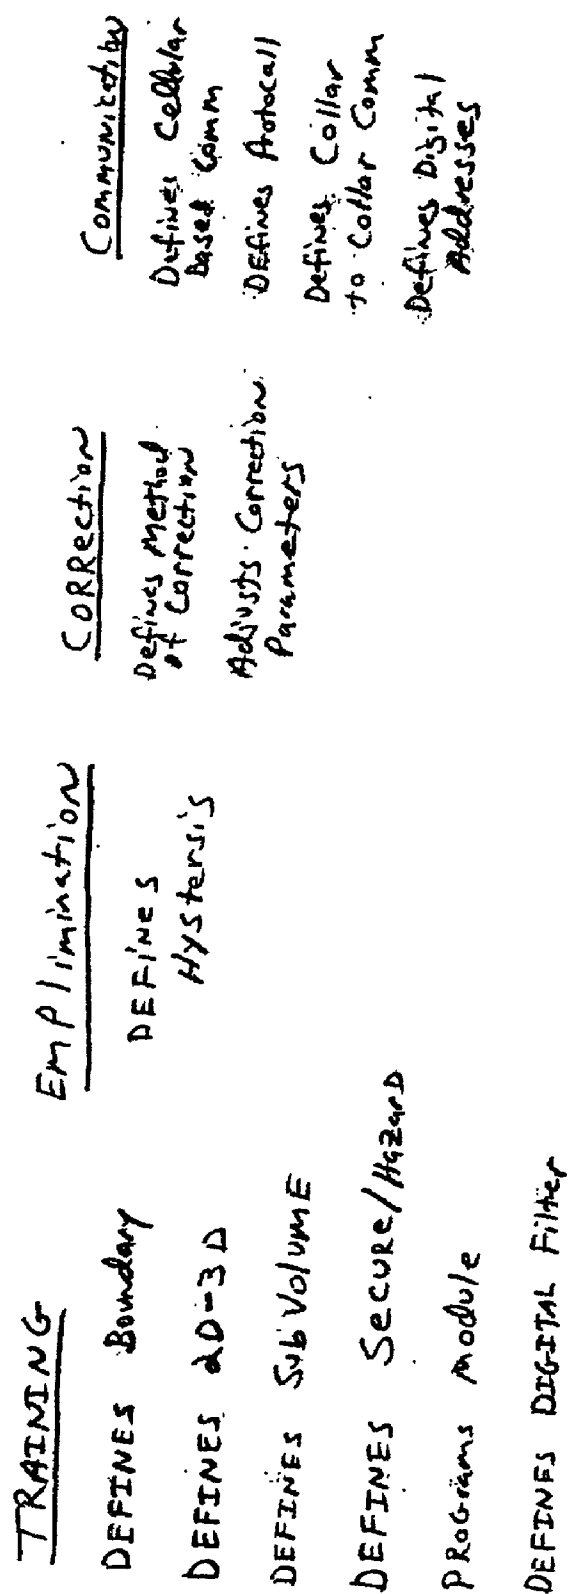 TRAINING
DEFINES Boundary
DEFINES 2D-3D
DEFINES SubVolumE
DEFINES SecuRe/HazarD
PROGrams Module
DEFINES DIGITAL Filter
EmPlimination
DEFINes
Hystersis
CORRection
Defines Method
of Correction
Adjusts Correction
Parameters
Communication
Defines Cellular
Based Comm
DEfines Protocall
Defines Collar
to Collar Comm
Defines Digital
Addresses